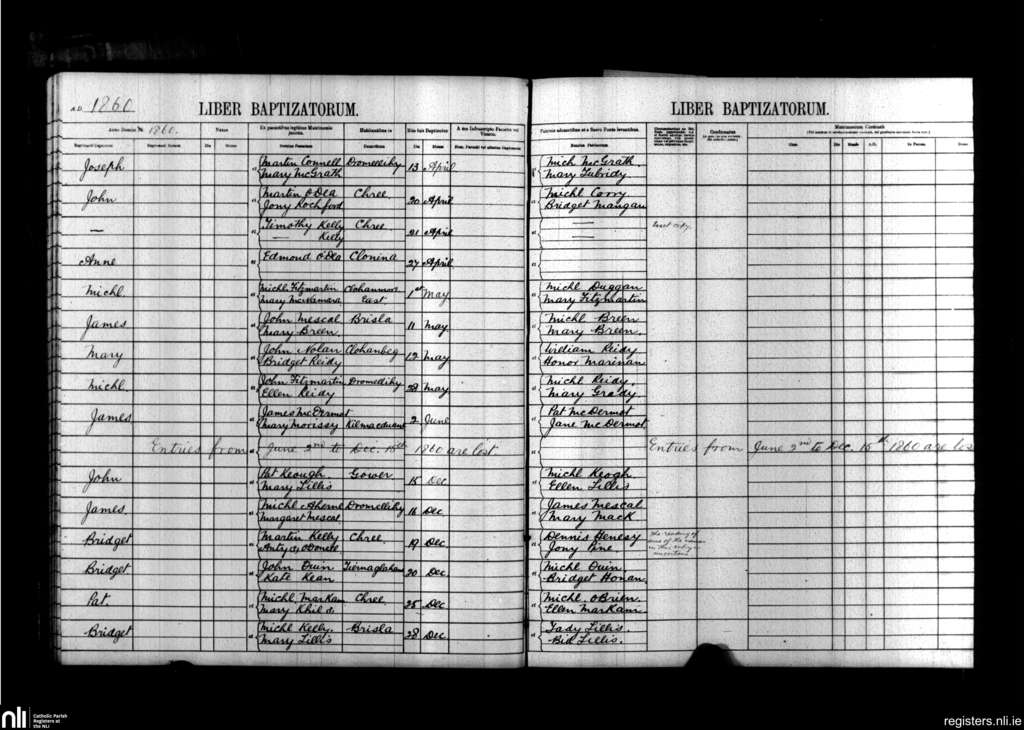 A.D. 1860
LIBER BAPTIZATORUM.
LIBER BAPTIZATORUM.
Anno Domini 1860.
Natus
Ex parentibus legitimo Matrimonio junctis.
Habitantibus in
Rite fuit Baptizatus
A me Infrascripto Parocho vel Vicario.
Patrinis adstantibus et a Sacro Fonte levantibus.
Confirmatus
Matrimonium Contraxit
Die Mense
Die Mensis
Die Mensis A.D.
Joseph
Martin Connell Dromellihy 13 April
Mary McGrath
Mich McGrath
Mary Tubridy
John
Martin O'Dea Chree 20 April
Jony Rochford
Michl Corry
Bridget Mangan
—
Timothy Kelly Chree 21 April
— Kelly
Exact copy.
Anne
Edmond O'Dea Clonina 27 April
Michl.
Michl Fitzmartin Clohanmore 1st May
Mary McNamara East
Michl Duggan
Mary Fitzmartin
James
John Mescal Brisla 11 May
Mary Breen.
Michl Breen
Mary Breen.
Mary
John Nolan Clohanbeg 12 May
Bridget Reidy
William Reidy
Honor Marinan
Michl.
John Fitzmartin Dromellihy 28 May
Ellen Reidy
Michl Reidy.
Mary Grady
James
James McDermot 2 June
Mary Morissy Kilmacduane
Pat McDermot
Jane McDermot
Entries from June 2nd to Dec. 15th 1860 are lost
Entries from June 2nd to Dec. 15th 1860 are los
John
Pat Keough Gower 15 Dec
Mary Lillis
Michl Keogh
Ellen Lillis
James.
Michl Aherne Dromellihy 16 Dec
Margaret Mescal
James Mescal
Mary Mack
Bridget
Martin Kelly Chree 19 Dec
Dennis Henesy
Jony Pine
The reading of some of the names in this entry is uncertain
Bridget
John Quin 20 Dec
Kate Kean
Michl Quin
Bridget Honan.
Pat.
Michl. Markam Chree 25 Dec
Mary
Michl. O'Brien.
Ellen Markam
Bridget
Michl Kelly. Brisla 28 Dec
Mary Lillis
Tady Lillis.
Bid Lillis.
nli Catholic Parish
Registers at
the NLI
registers.nli.ie